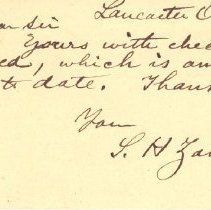 Lancaster O
ar Sir
Yours with chec
ed, which is am
to date. Than
You
S. H Zar